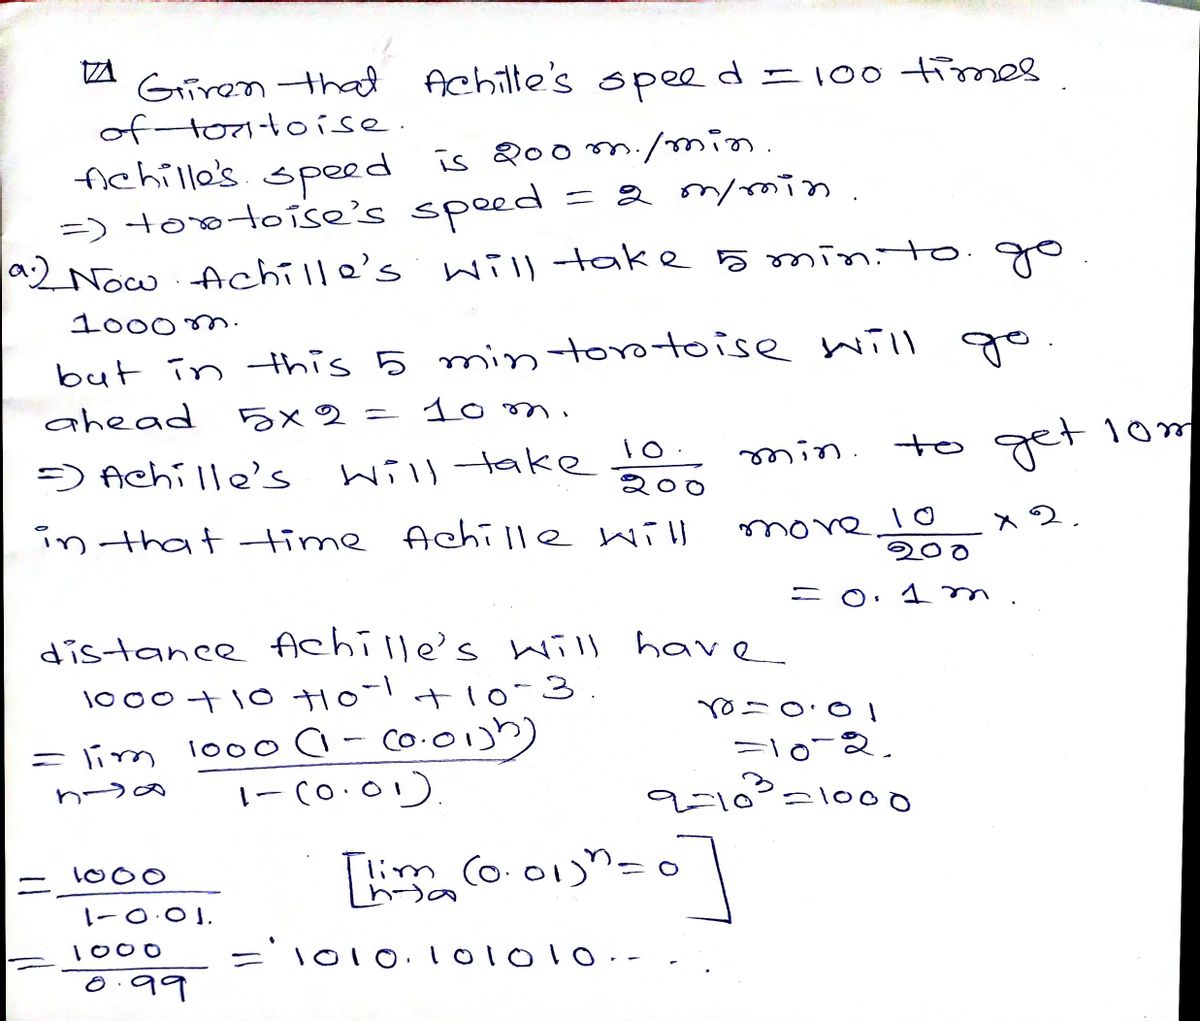 Given that Achille's speed = 100 times
of tortoise.
Achille's speed is 200 m./min.
=> tortoise's speed = 2 m/min.
a.) Now Achille's will take 5 min. to go
1000 m.
but in this 5 min tortoise will go
ahead 5x2 = 10 m.
=> Achille's will take 10/200 min. to get 10m
in that time Achille will move 10/200 x 2.
= 0.1 m.
distance Achille's will have
1000 + 10 + 10^-1 + 10^-3.
r = 0.01
= lim n→∞ 1000 (1 - (0.01)^n) / 1 - (0.01).
= 10^-2.
a = 10^3 = 1000
= 1000 / 1 - 0.01. [lim n→∞ (0.01)^n = 0]
= 1000 / 0.99 = 1010.101010....